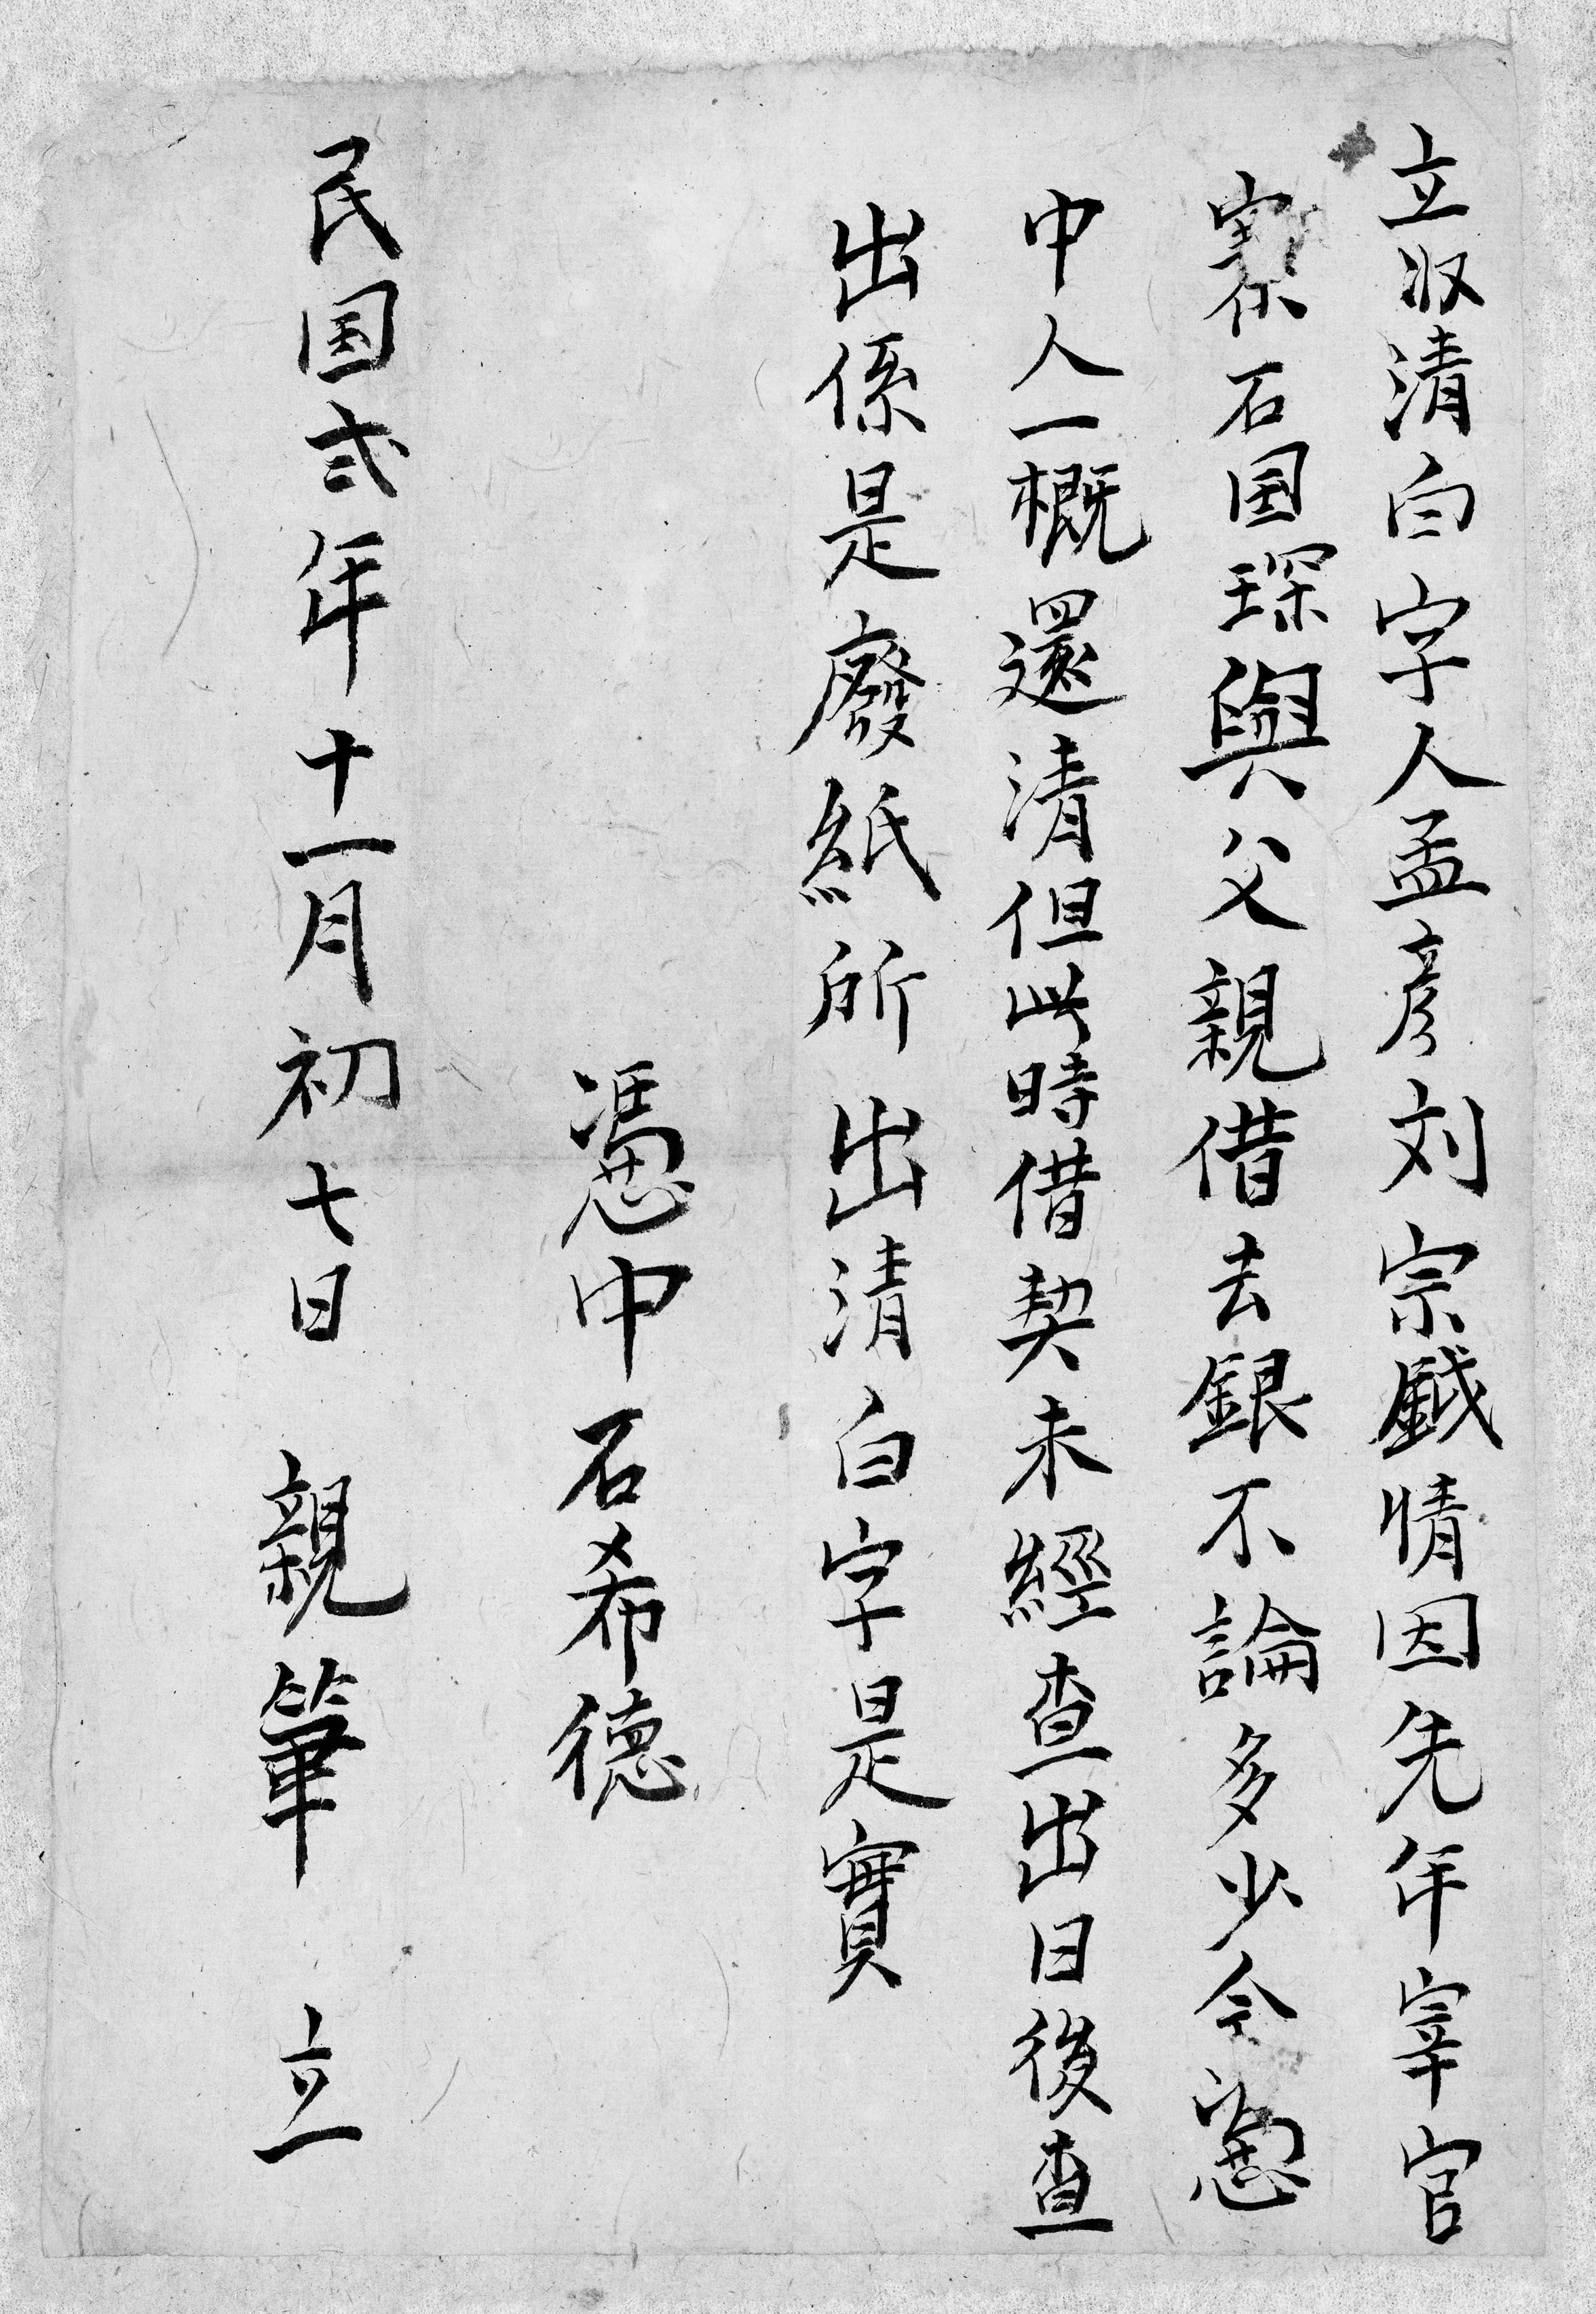 立収清白字人孟彦刘宗鉞情因先年宰官
寨石国琛與父親借去銀不論多少今憑
中人一概還清但此時借契未經查出日後查
出係是廢紙所出清白字是實
憑中石希德
民国弍年十一月初七日親筆立